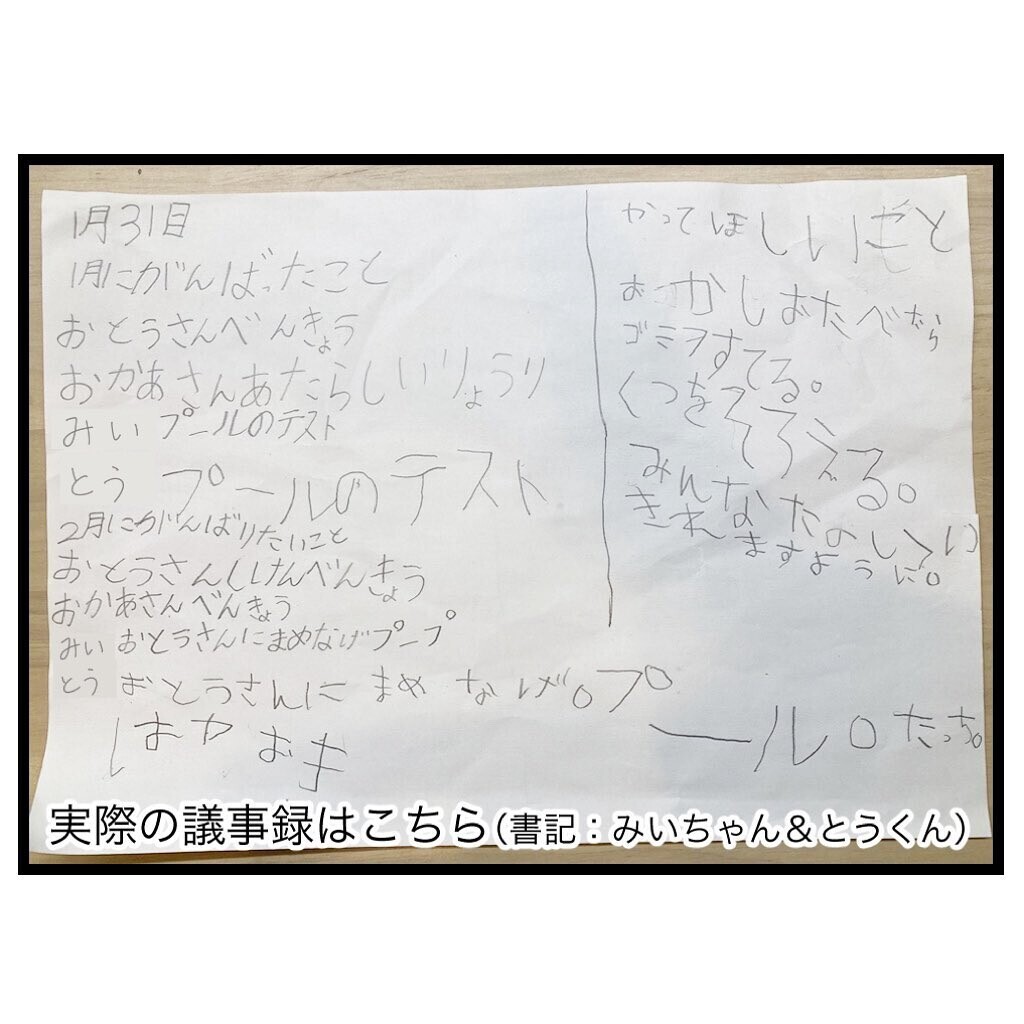 1月31日
1月にがんばったこと
おとうさんべんきょう
おかあさんあたらしいりょうり
みい プールのテスト
とう プールのテスト
2月にがんばりたいこと
おとうさんしけんべんきょう
おかあさんべんきょう
みい おとうさんにまめなげプープ
とう おとうさんにまめなげ。プール。たっち。
はやおき
かってほしいもと
おかしおたべたら
ゴミヲすてる。
くつをそろえる。
みんなたのしく
きれますように。
実際の議事録はこちら(書記：みいちゃん&とうくん)